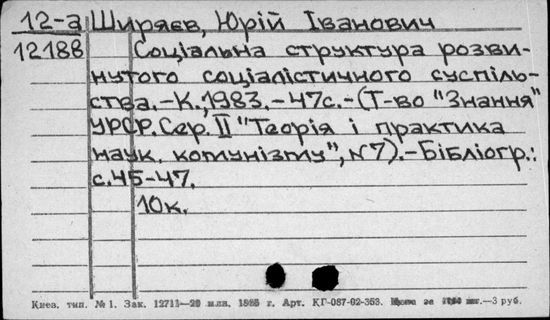 12-а Ширяєв, Юрій Іванович
12188 Соціальна структура розви-
нутого соціалістичного суспіль-
ства.-К.,1983.-47с.-(Т-во "Знання"
УРСР. Сер. II "Теорія і практика
наук. комунізму", №7).-Бібліогр.:
с.45-47.
10к.
Киев. тип. № 1. Зак. 12711—20 млн. 1985 г. Арт. КГ-087-02-353. за шт.—3 руб.